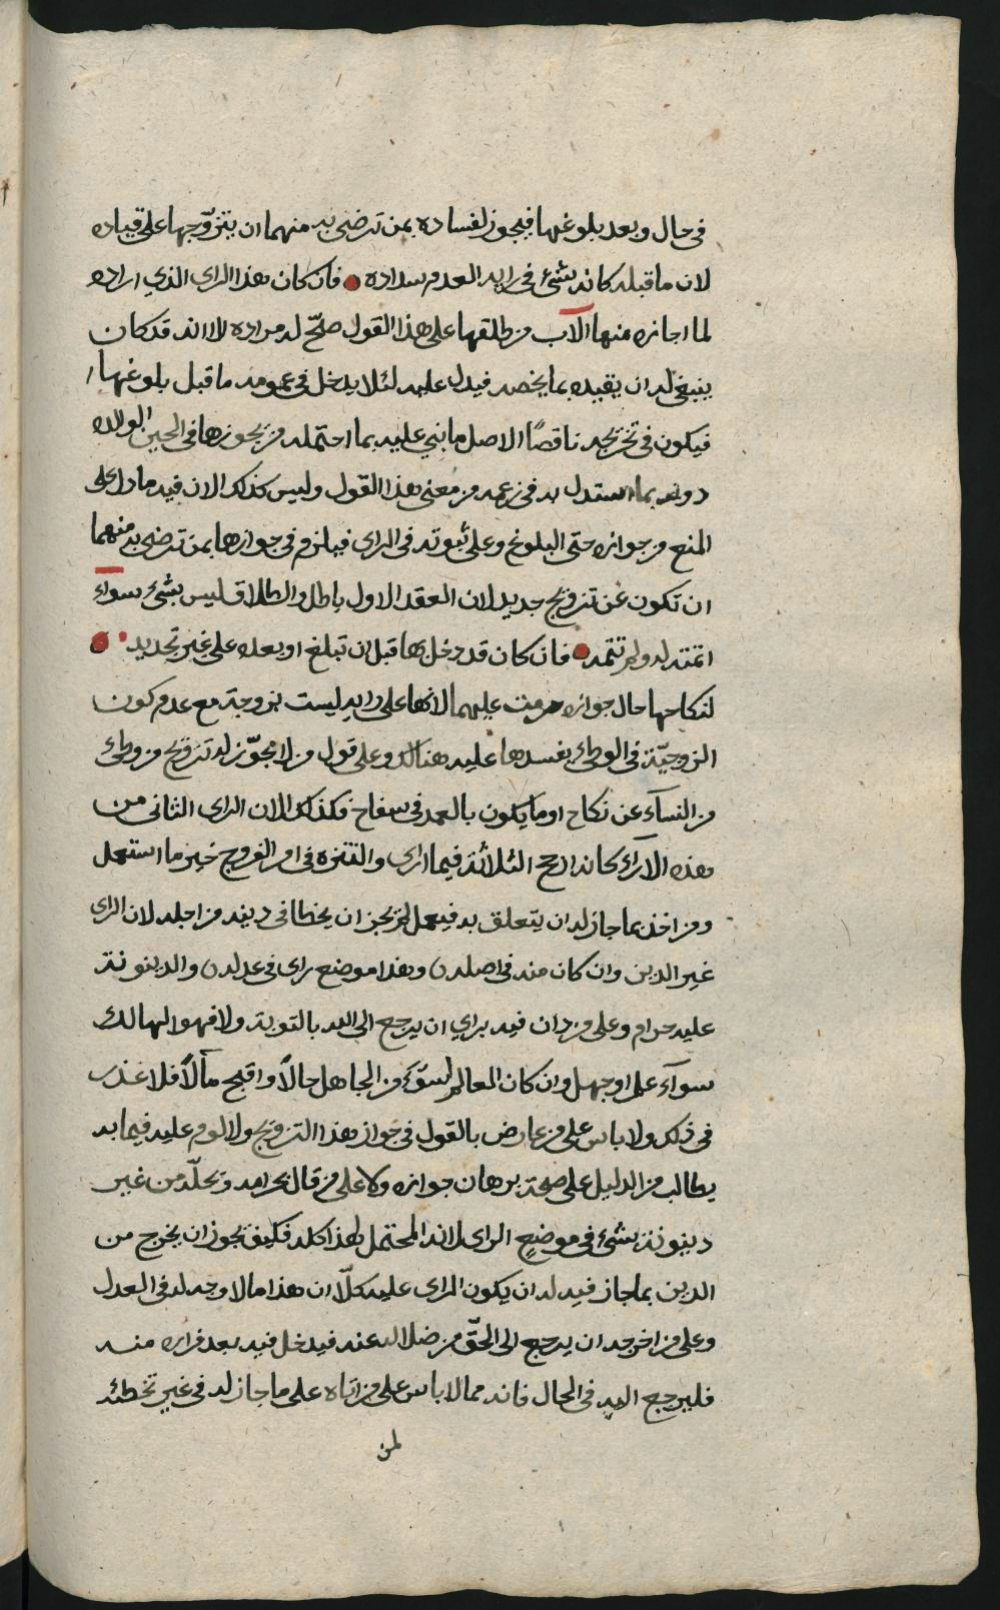 في حال وبعد بلوغها فيجوز لفساده بمن ترضى به منهما ان يتزوّجها على قياده
لان ما قبله كانه بشئ في رايه لعدم سداده فان كان هذا الراي الذي اراده
لما اجازه منها الآب من طلقها على هذا القول صلح له مراده الا انه قد كان
ينبغي له ان يقيده بما يخصه فيدل عليه لئلا يدخل في عمومه ما قبل بلوغها
فيكون في تخريجه ناقضًا الاصل ما بني عليه بما احتمله من يجوزها في الحين الولاه
دونه بما استدل به في زعمه من معنى هذا القول وليس كذلك لان فيه ما دل على
المنع من جوازه حتى البلوغ وعلى ثبوته في الراي فيلزم في جوازها بمن ترضى به منهما
ان تكون عن تزويج جديد لان العقد الاول باطل والطلاق ليس بشئ سواء
اتمته له ولم تتمه فان كان قد دخل بها قبل ان تبلغ او بعده على غير تجديد
لنكاحها حال جوازه حرمت عليهما لانها على رايه ليست بزوجة مع عدم كون
الزوجيّة في الوطئ يفسدها عليه هنالك وعلى قول من لا يجوّز له تزويج من وطئ
من النسآء عن نكاح او ما يكون بالعمد في سفاح فكذلك لان الراي الثاني من
هذه الآراء كانه ارجح الثلاثة فيما ارى والتنزه في امر الفروج خير ما استعمل
ومن اخذ بما جاز له ان يتعلق به فيعمل لم يجز ان يخطا في دينه من اجله لان الراي
غير الدين وان كان منه في اصله وهذا موضع راي في عدله والدينونة
عليه حرام وعلى من دان فيه براي ان يرجع الى الله بالتوبة ولا فهو الهالك
سوآء علم او جهل وان كان العالم اسوَء من الجاهل حالاً واقبح مآلاً فلا عذر
في ذلك ولا باس على من عارض بالقول في جواز هذا التزويج ولا لوم عليه فيما به
يطالب من الدليل على صحة برهان جوازه ولا على من قال بحرامه وتحلّه من غير
دينونة بشئ في موضع الراي لانه المحتمل لهذا كله فكيف يجوز ان يخرج من
الدين بما جاز فيه له ان يكون الراي عليه كلّا ان هذا ما لا وجه له في العدل
وعلى من اخرجه ان يرجع الى الحقّ من ضلاله عنه فيدخل فيه بعد فراره منه
فليرجع اليه في الحال فانه مما لا باس على من اتاه على ما جاز له في غير تخطئة
لمن